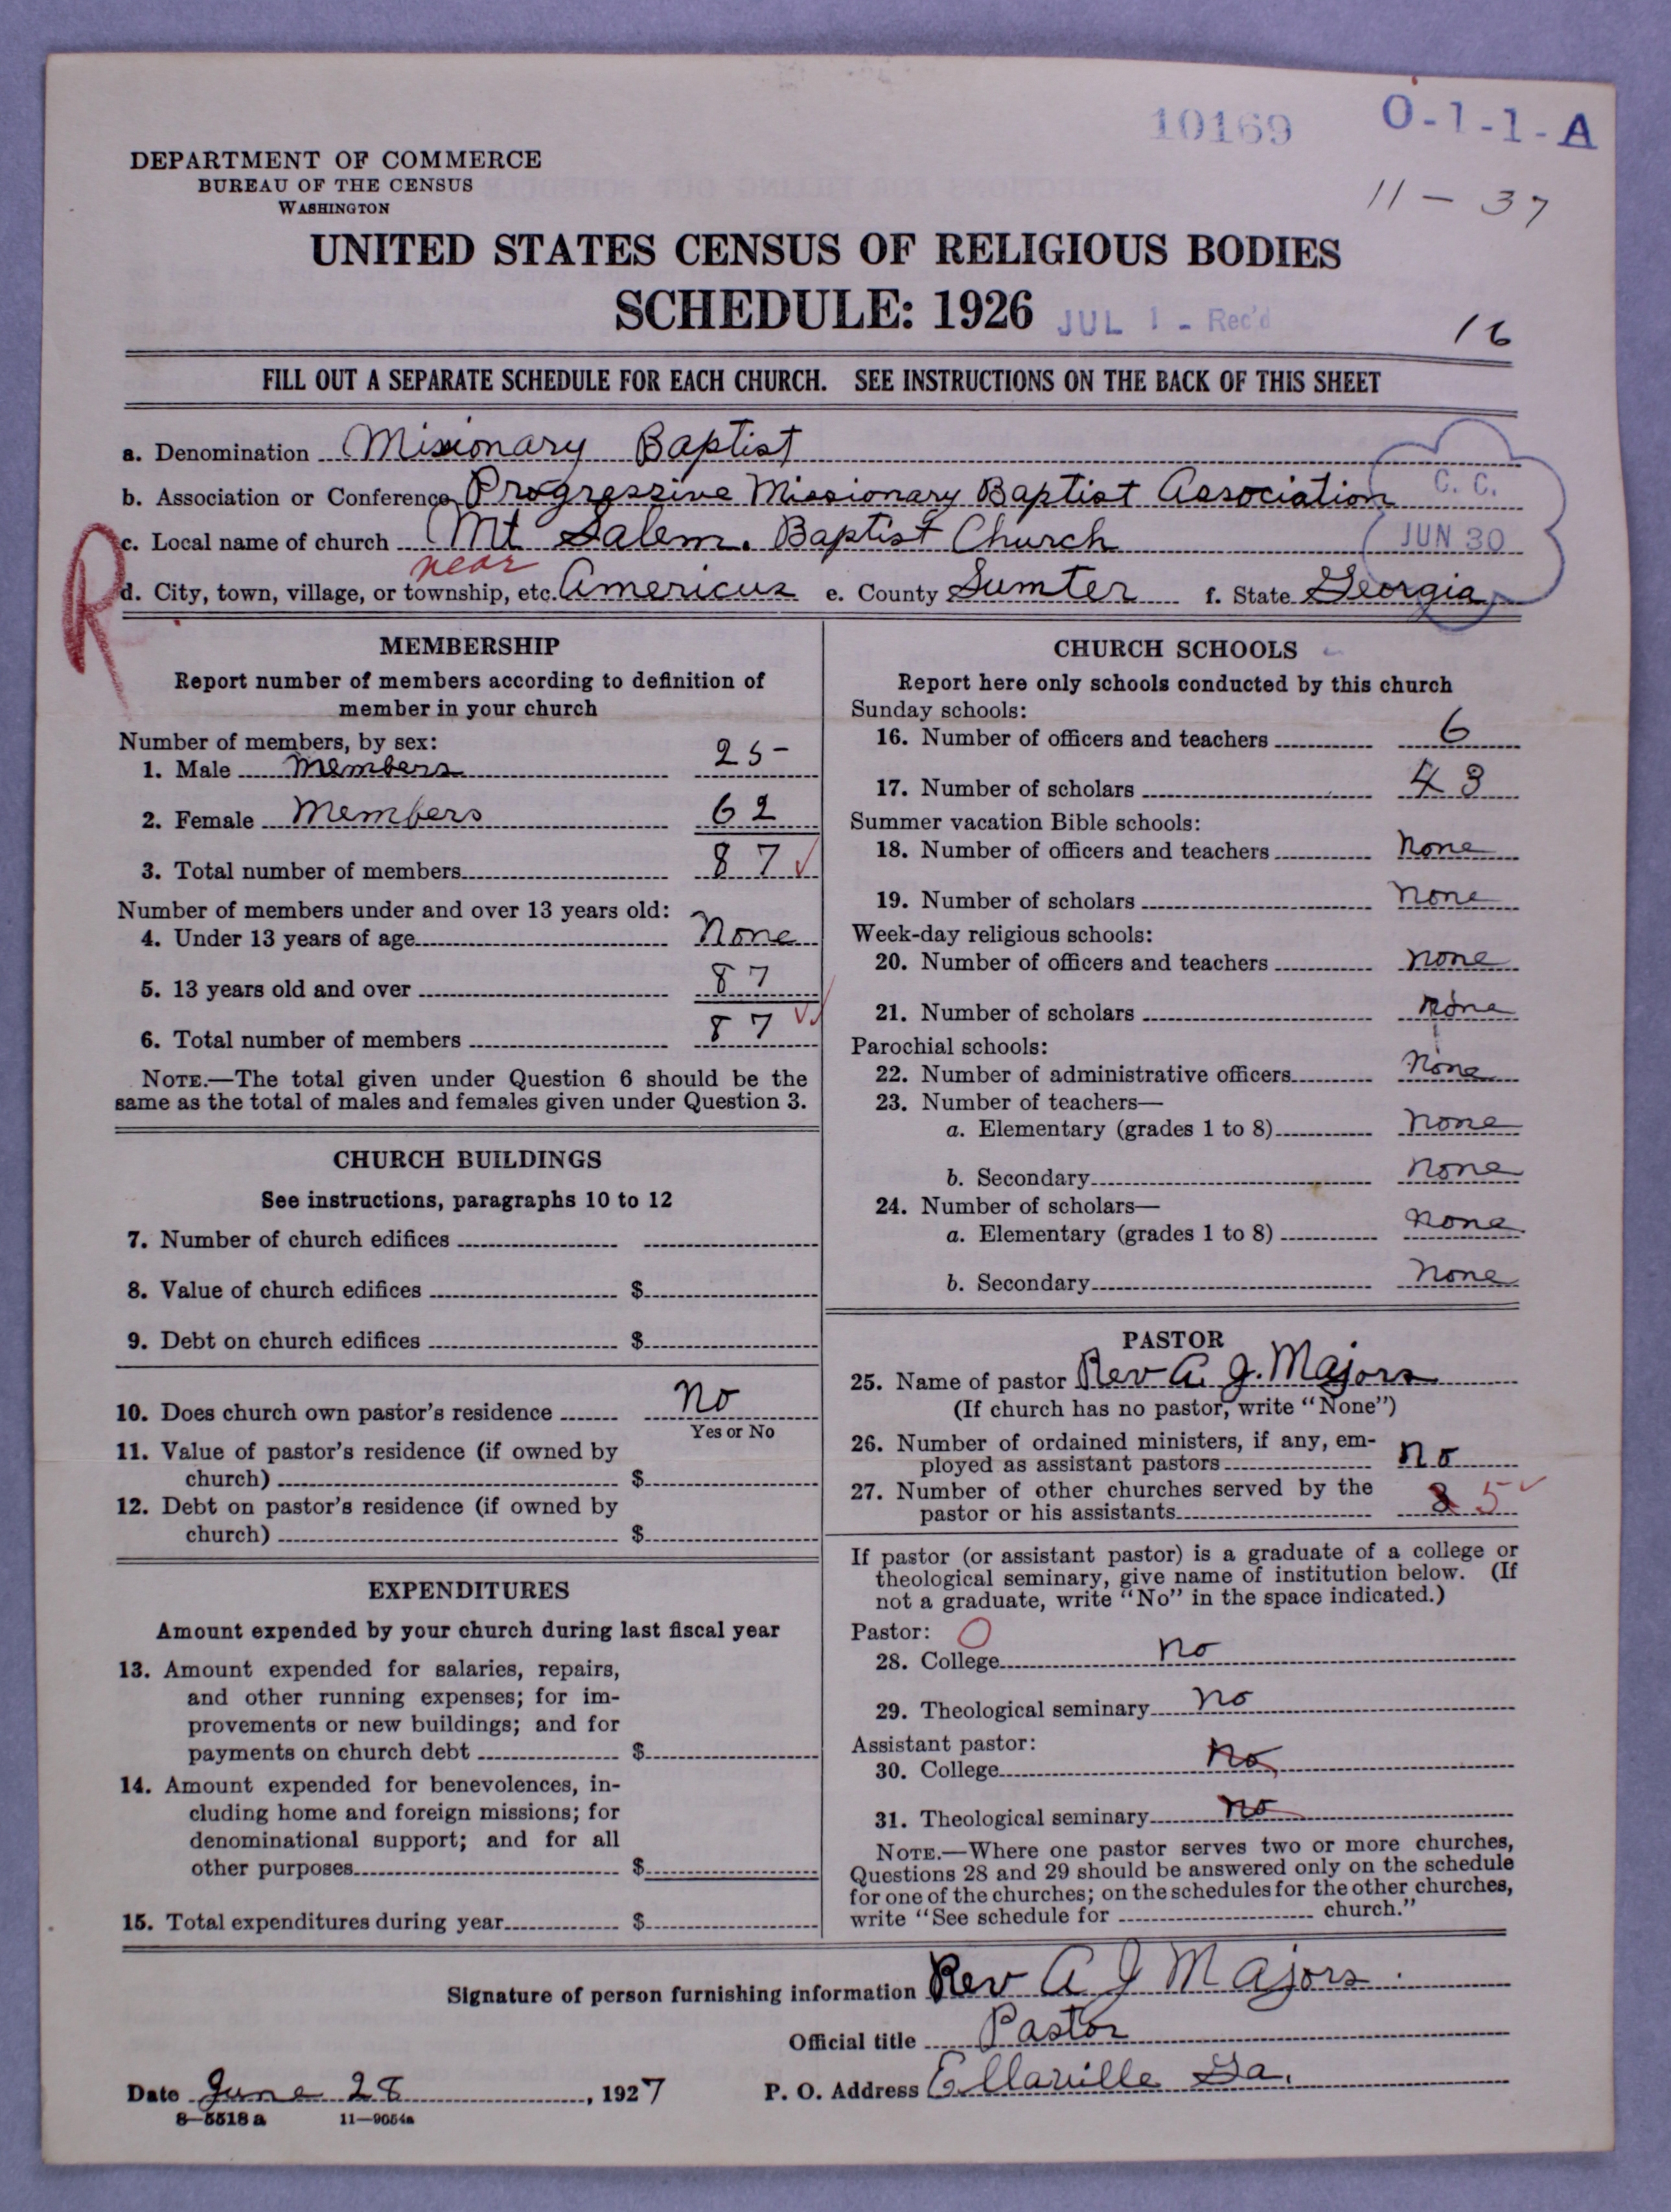 10169
O-1-1-A
DEPARTMENT OF COMMERCE
BUREAU OF THE CENSUS
WASHINGTON
11 - 37
UNITED STATES CENSUS OF RELIGIOUS BODIES
SCHEDULE: 1926
JUL 1 - Rec'd
16
FILL OUT A SEPARATE SCHEDULE FOR EACH CHURCH. SEE INSTRUCTIONS ON THE BACK OF THIS SHEET
a. Denomination Missionary Baptist
b. Association or Conference Progressive Missionary Baptist Association
C. C.
c. Local name of church Mt Salem. Baptist Church
JUN 30
R
near
d. City, town, village, or township, etc. Americus e. County Sumter f. State Georgia
MEMBERSHIP
Report number of members according to definition of
member in your church
Number of members, by sex:
1. Male Members 25-
2. Female Members 62
3. Total number of members 87
Number of members under and over 13 years old:
4. Under 13 years of age None
5. 13 years old and over 87
6. Total number of members 87
NOTE.—The total given under Question 6 should be the
same as the total of males and females given under Question 3.
CHURCH BUILDINGS
See instructions, paragraphs 10 to 12
7. Number of church edifices
8. Value of church edifices $
9. Debt on church edifices $
10. Does church own pastor's residence No
Yes or No
11. Value of pastor's residence (if owned by
church) $
12. Debt on pastor's residence (if owned by
church) $
EXPENDITURES
Amount expended by your church during last fiscal year
13. Amount expended for salaries, repairs,
and other running expenses; for im-
provements or new buildings; and for
payments on church debt $
14. Amount expended for benevolences, in-
cluding home and foreign missions; for
denominational support; and for all
other purposes $
15. Total expenditures during year $
CHURCH SCHOOLS
Report here only schools conducted by this church
Sunday schools:
16. Number of officers and teachers 6
17. Number of scholars 43
Summer vacation Bible schools:
18. Number of officers and teachers None
19. Number of scholars None
Week-day religious schools:
20. Number of officers and teachers none
21. Number of scholars none
Parochial schools:
22. Number of administrative officers None
23. Number of teachers—
a. Elementary (grades 1 to 8) None
b. Secondary none
24. Number of scholars—
a. Elementary (grades 1 to 8) none
b. Secondary None
PASTOR
25. Name of pastor Rev A. J. Majors
(If church has no pastor, write "None")
26. Number of ordained ministers, if any, em-
ployed as assistant pastors no
27. Number of other churches served by the
pastor or his assistants 5
If pastor (or assistant pastor) is a graduate of a college or
theological seminary, give name of institution below. (If
not a graduate, write "No" in the space indicated.)
Pastor: O
28. College no
29. Theological seminary no
Assistant pastor:
30. College No
31. Theological seminary no
NOTE.—Where one pastor serves two or more churches,
Questions 28 and 29 should be answered only on the schedule
for one of the churches; on the schedules for the other churches,
write "See schedule for church."
Signature of person furnishing information Rev A J Majors
Official title Pastor
Date June 28, 1927 P. O. Address Ellaville Ga.
8-5518 a 11-9054a